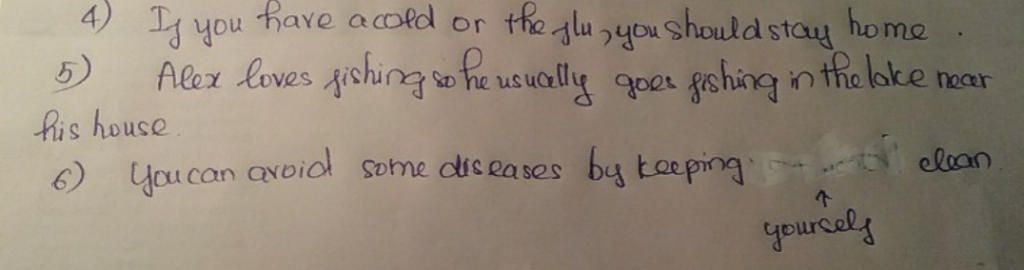 4) If you have a cold or the flu, you should stay home.
5) Alex loves fishing so he usually goes fishing in the lake near
his house.
6) You can avoid some diseases by keeping clean
↑
yourself